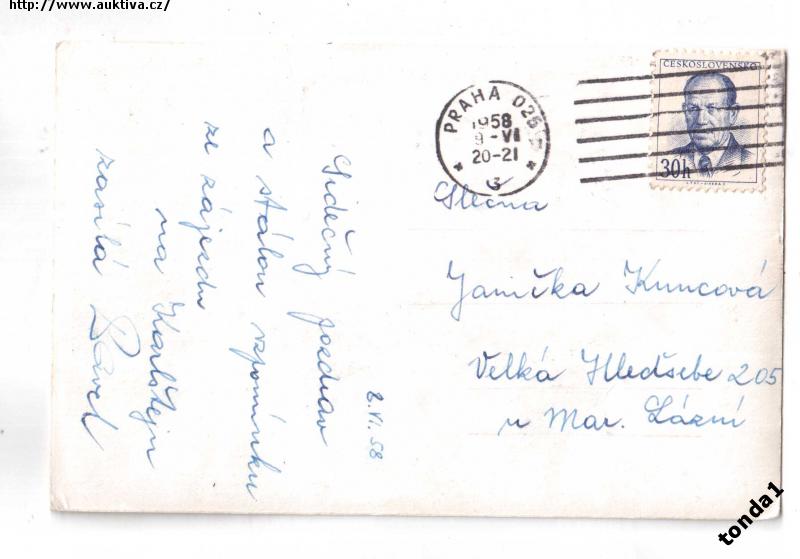 http://www.auktiva.cz/
ČESKOSLOVENSKO
30h
PRAHA 025
1958
9-VI
20-21
3
Srdečný pozdrav
a stálou vzpomínku
ze zájezdu
na Karlštejn
zasílá Pavel
8.VI.58
Slečna
Janička Kuncová
Velká Hleďsebe 205
u Mar. Lázní
tonda1